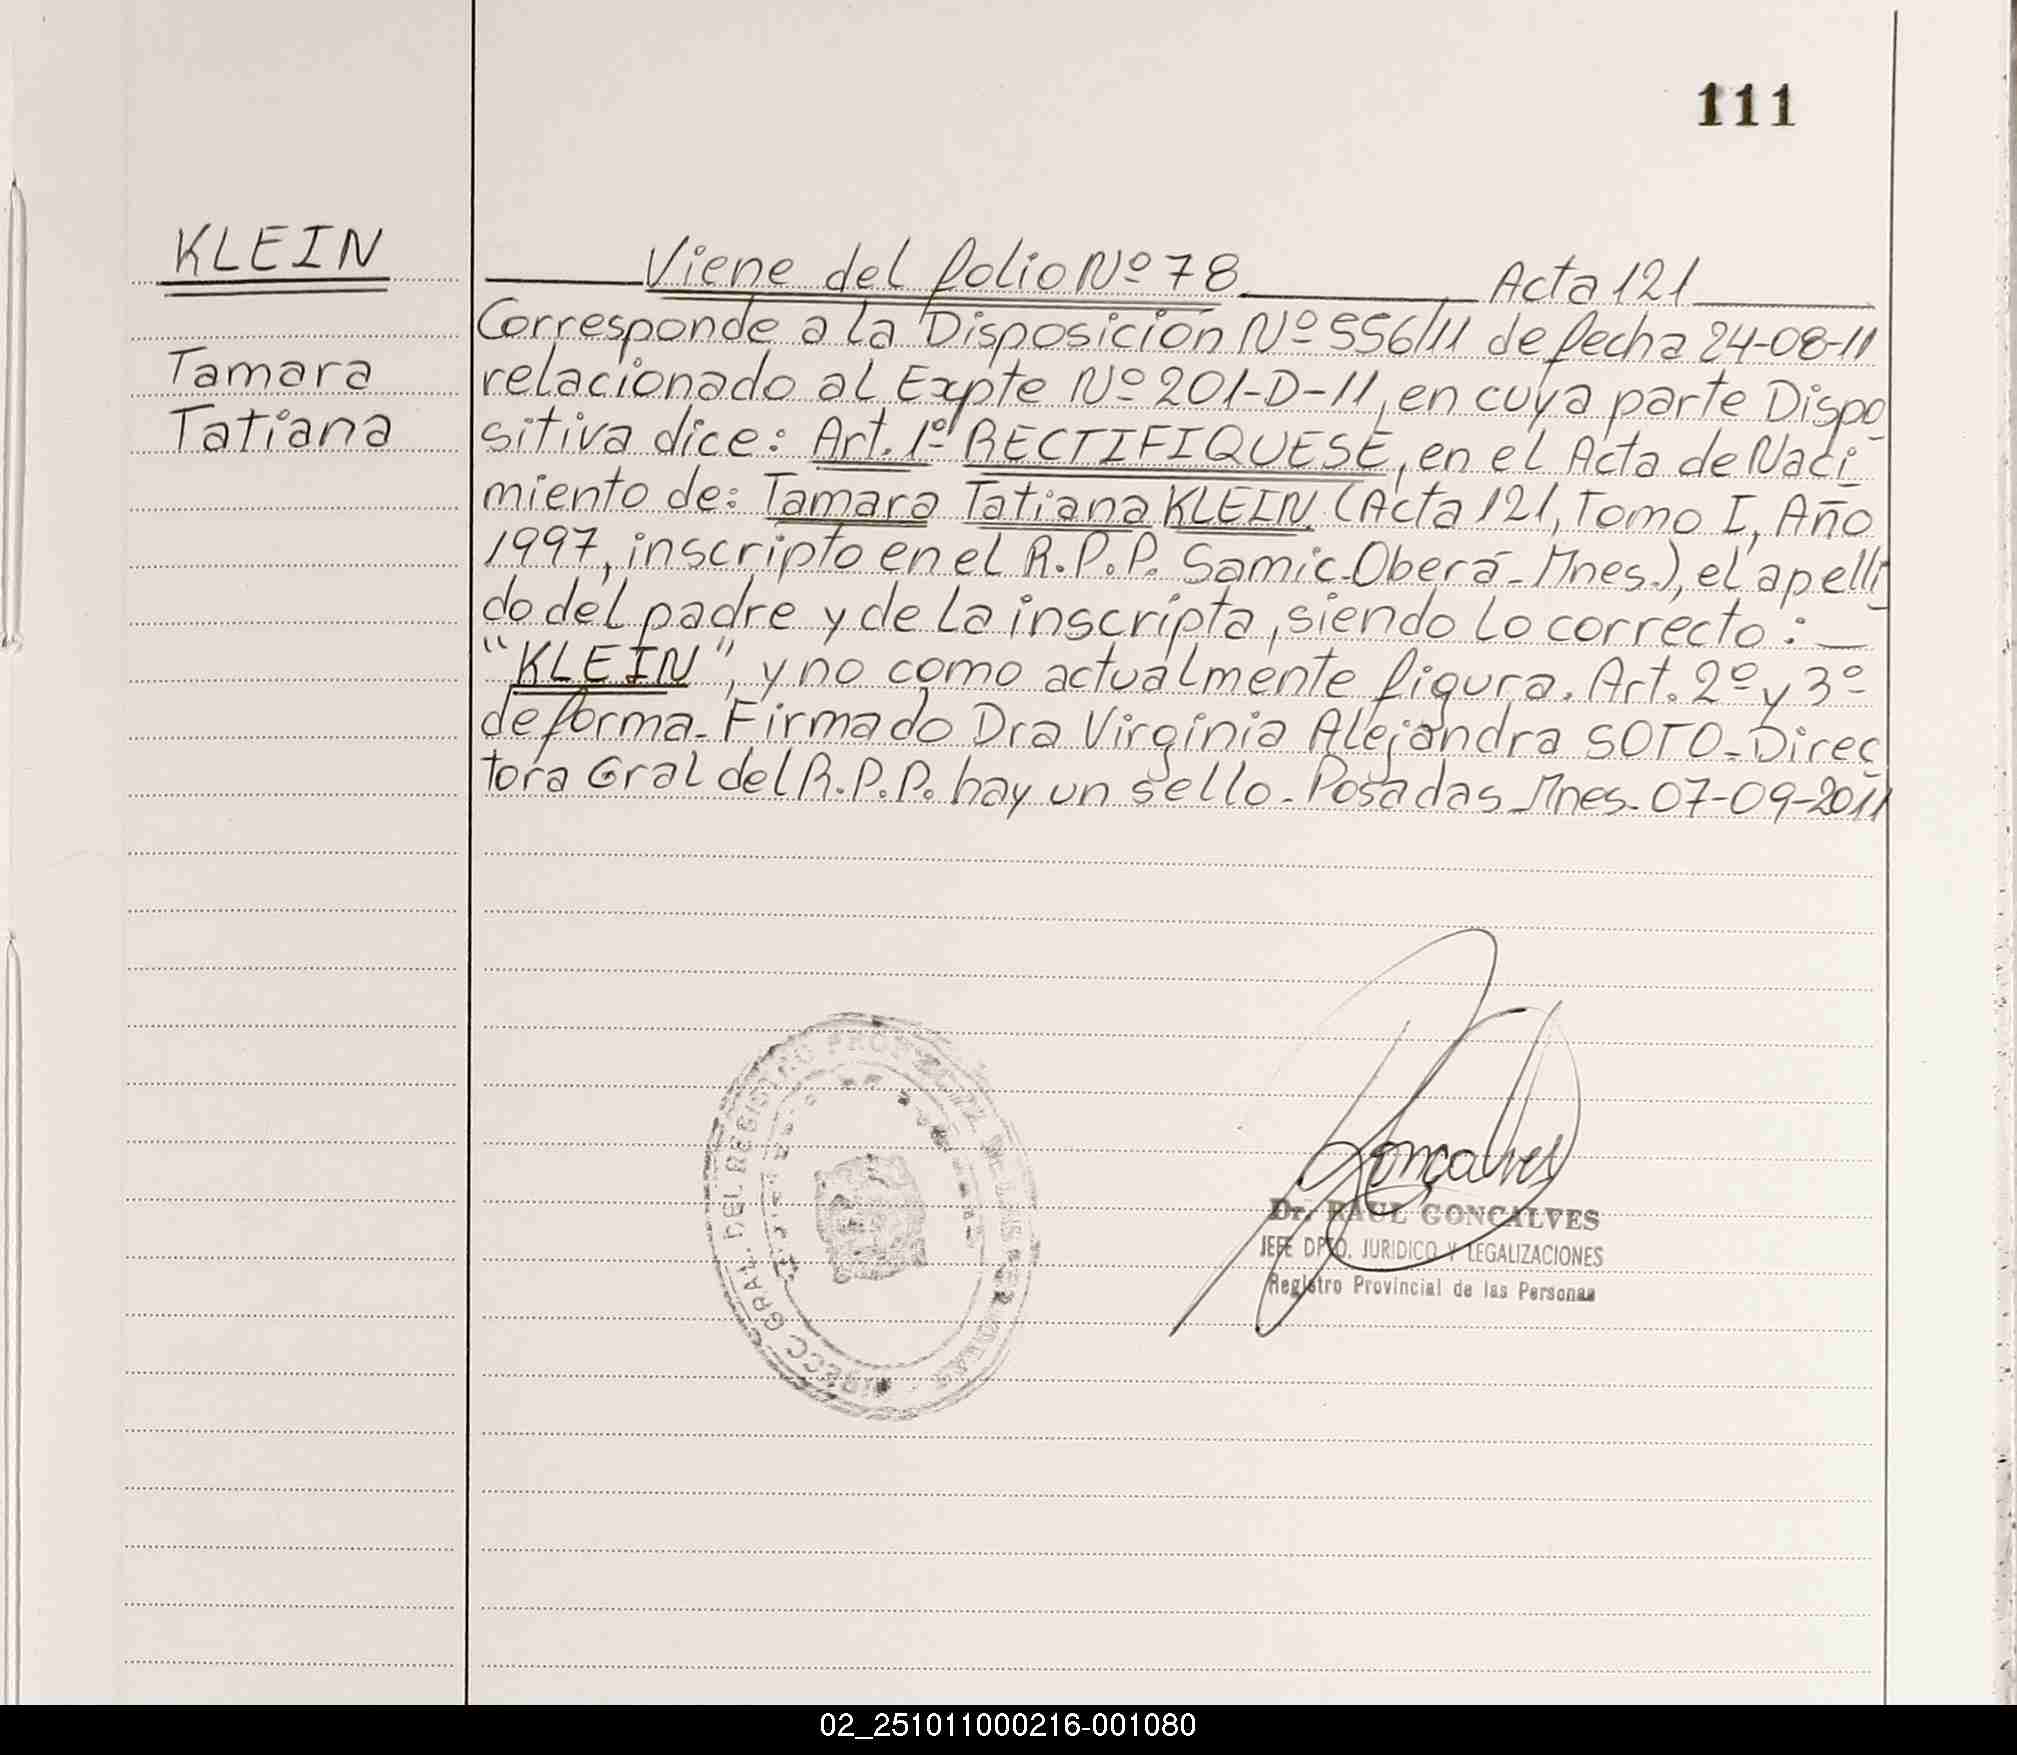 111
KLEIN
Tamara
Tatiana
Viene del folio Nº 78 Acta 121
Corresponde a la Disposición Nº 556/11 de fecha 24-08-11
relacionado al Expte Nº 201-D-11, en cuya parte Dispo
sitiva dice: Art. 1º RECTIFIQUESE, en el Acta de Naci
miento de: Tamara Tatiana KLEIN (Acta 121, Tomo I, Año
1997, inscripto en el R.P.P. Samic-Oberá-Mnes.), el apelli
do del padre y de la inscripta, siendo lo correcto: —
"KLEIN", y no como actualmente figura. Art. 2º y 3º
de forma. Firmado Dra Virginia Alejandra SOTO-Direc
tora Gral del R.P.P. hay un sello. Posadas Mnes. 07-09-2011
DIRECC GRAL. DEL REGISTRO
Gonçalves
Dr. RAUL GONCALVES
JEFE DPTO. JURIDICO Y LEGALIZACIONES
Registro Provincial de las Personas
02_251011000216-001080